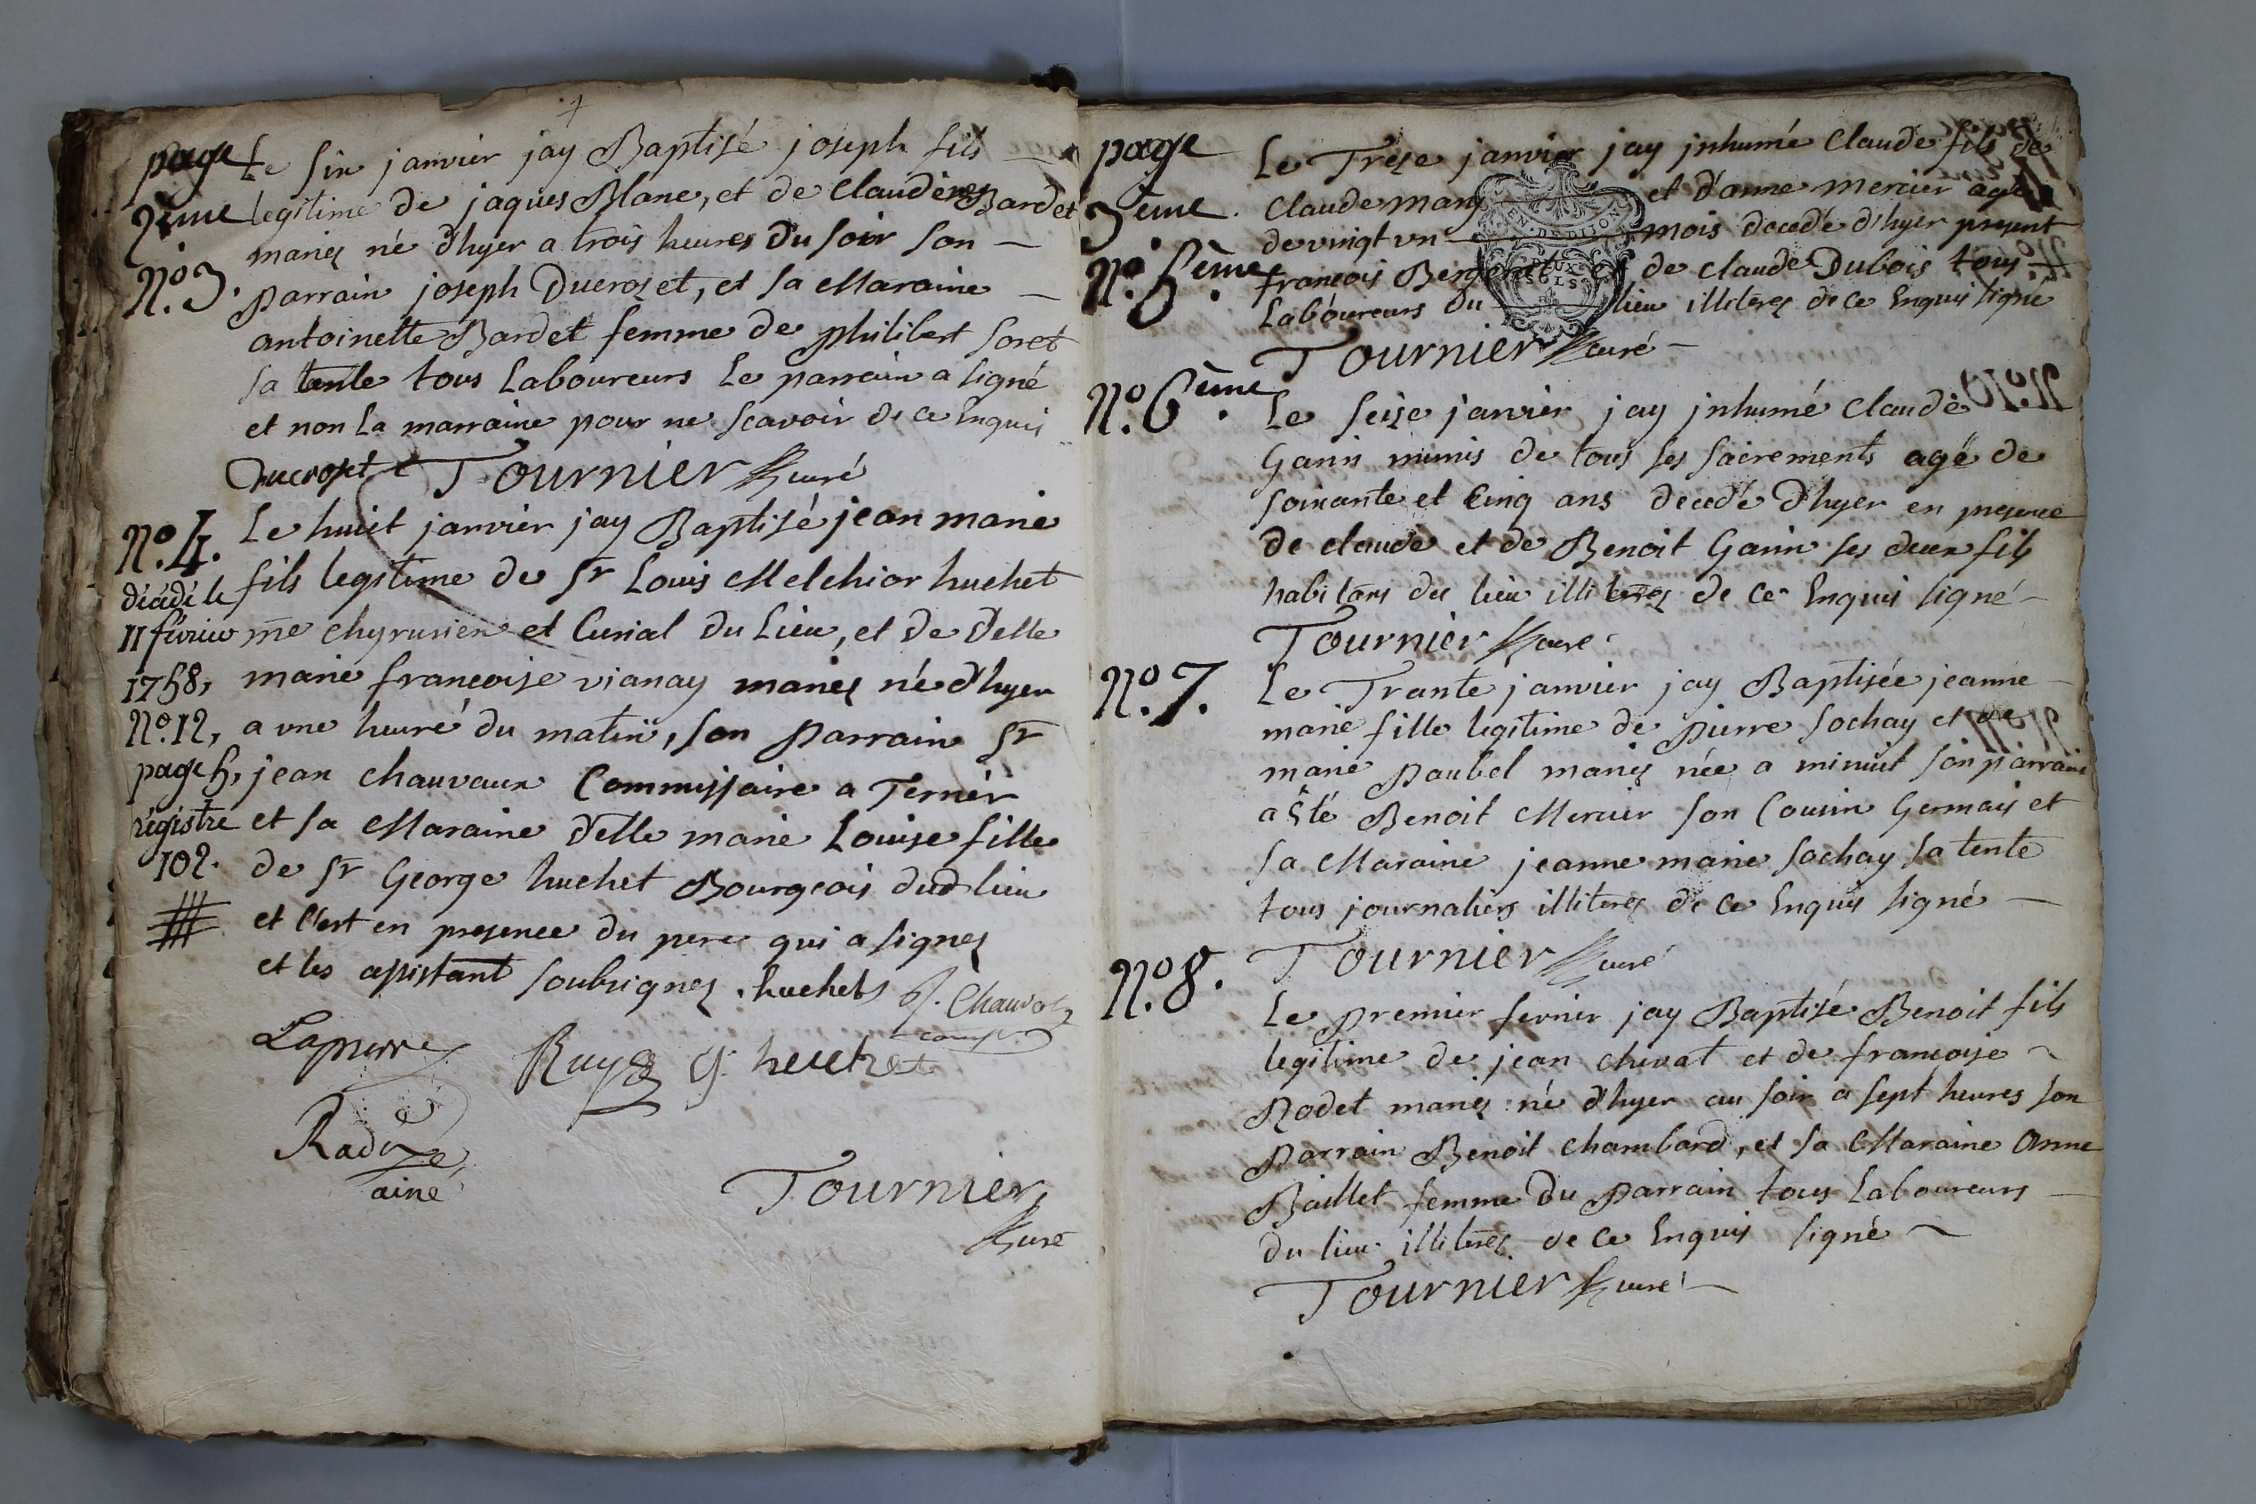 page
2ème
Le six janvier jay Baptisé joseph fils
legitime de jaques Blanc, et de Claudine Bardet
N.º 3.
mariez né d'hyer a trois heures du soir son
parrain joseph Ducroset, et sa Maraine
antoinette Bardet femme de philibert Soret
sa tente tous Laboureurs Le parrain a signé
et non La marraine pour ne scavoir de ce Enquis
Ducroset Tournier Curé
N.º 4.
Le huict janvier jay Baptisé jean marie
fils legitime de Sr Louis Melchior huchet
me chyrurien et Curial du Lieu, et de Delle
marie francoise vianay mariez né d'hyer
a une heuré du matin, son Parrain Sr
jean chauvaux Commissaire a Ternér
et sa Maraine Delle marie Louise fille
de Sr George huchet Bourgeois dud lieu
et c'est en presence du pere qui a signez
et les assistant soubsignez . huchet J. Chauvaux
décédé le
11 février
1758,
N.º 12,
page 5,
régistre
102.
Lapierre Ruys G. heuchet
Radix
ainé
Tournier
Curé
page
3ème.
N.º 5ème.
Le Treze janvier jay jnhumé Claude fils de
Claude mary et d'anne mercier agé
de vingt vn mois decedé d'hyer present
francois Bergeret et de claude Dubois tous
Laboureurs du lieu illiterez de ce Enquis signé
EN. DE DIJON
DEUX
SOLS
Tournier Curé
N.º 6ème.
Le Seize janvier jay jnhumé Claude
Garin munis de tous ses sacrements agé de
soixante et Cinq ans decedé d'hyer en presence
de claude et de Benoit Garin ses deux fils
habitans du lieu illiterez de ce Enquis signé
Tournier Curé
N.º 7.
Le Trante janvier jay Baptisée jeanne
marie fille legitime de pierre sochay et de
marie paubel mariez née a minuit son parrain
a Eté Benoit Mercier son Cousin Germain et
sa Maraine jeanne marie sochay sa tente
tous journaliers illiterez de ce Enquis signé
Tournier Curé
N.º 8.
Le premier fevrier jay Baptisé Benoit fils
legitime de jean chevat et de francoise
Nodet mariez né d'hyer au soir a sept heures son
Parrain Benoit chambard, et sa Maraine Anne
Baillet femme du Parrain tous Laboureurs
du lieu illiterez de ce Enquis signé
Tournier Curé